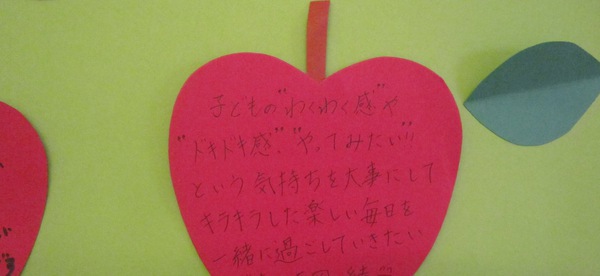 子どもの"わくわく感"や
"ドキドキ感"、"やってみたい!!"
という気持ちを大事にして
キラキラした楽しい毎日を
一緒に過ごしていきたい